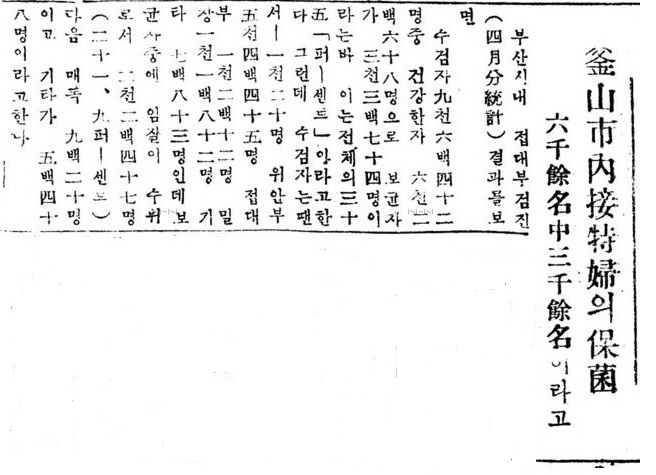 釜山市內接待婦의保菌
六千餘名中三千餘名이라고
부산시내 접대부검진
(四月分統計) 결과를보
면
수검자九천六백四十二
명중 건강한자 六천二
백六十八명으로 보균자
가 三천三백七十四명이
라는바 이는전체의三十
五「퍼—센트」이라고한
다 그런데 수검자는땐
서—一천二十명 위안부
五천四백四十五명 접대
부 一천二백十二명 밀
창一천一백八十二명 기
타 七백八十三명인데보
균자중에 임질이 수위
로서 二천二백四十七명
(二十一、九퍼—센트)
다음 매독 九백二十명
이고 기타가 五백四十
八명이라고한다